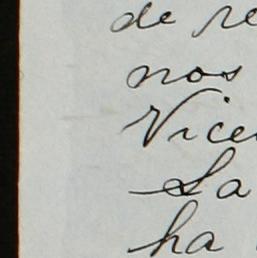 de re
nos
Vice
La
ha